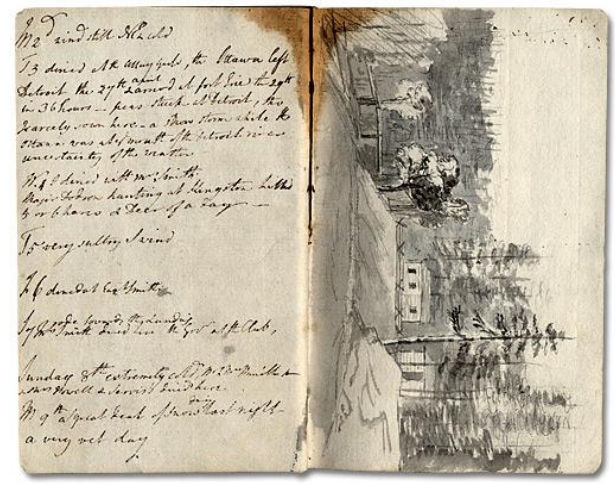 M 2d wind still N & cold
T 3 dined at the , the Ottawa left
Detroit the 27th april & arrived at fort Erie the 29th
in 36 hours — peas stuck at Detroit, tho
scarcely sown here — a snow storm while the
Ottawa was at ye mouth of the Detroit river
uncertainty of the weather
W 4 I dined with Mrs Smith.
Major Dodson hunting at Kingston killed
5 or 6 hares & Deer of a day —
T 5 very sultry S wind
F 6 dined at Smiths
S 7 rode towards the Landing
Mrs Smith dined here the Govr at the Club,
Sunday 8th extremely cold, Mr & Mrs Smith &
Mrs Powell & dined here
M 9th a great deal of snow last night
a very wet day